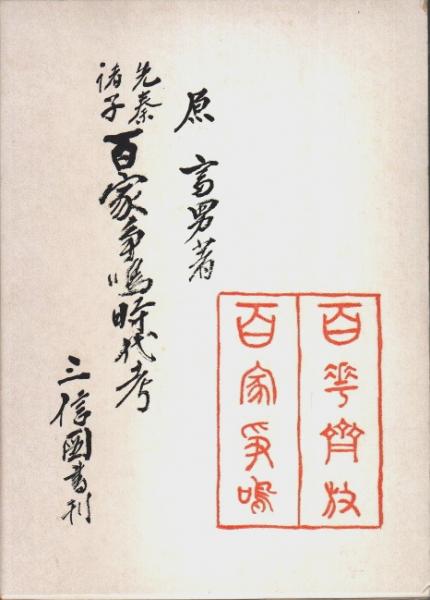 原富男著
先秦
諸子
百家争鳴時代考
三信図書刊
百花齊放
百家爭鳴